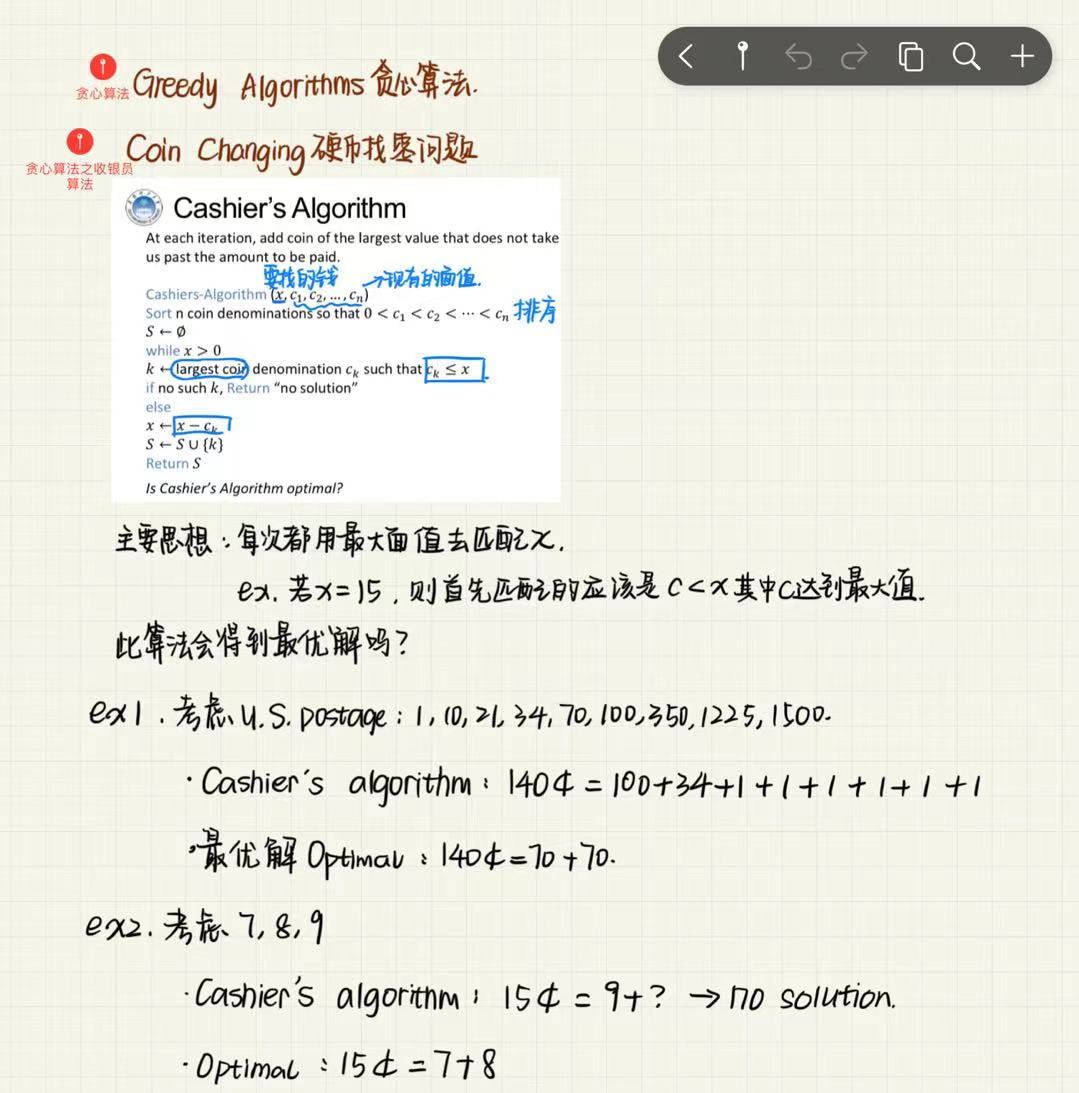 贪心算法
Greedy Algorithms 贪心算法.
贪心算法之收银员
算法
Coin Changing 硬币找零问题
Cashier's Algorithm
At each iteration, add coin of the largest value that does not take
us past the amount to be paid.
要找的钱 →现有的面值.
Cashiers-Algorithm (x, c₁, c₂, …, cₙ)
Sort n coin denominations so that 0 < c₁ < c₂ < ⋯ < cₙ 排序
S ← ∅
while x > 0
k ← largest coin denomination cₖ such that cₖ ≤ x
if no such k, Return "no solution"
else
x ← x − cₖ
S ← S ∪ {k}
Return S
Is Cashier's Algorithm optimal?
主要思想：每次都用最大面值去匹配x.
ex. 若x=15, 则首先匹配的应该是 c<x 其中c达到最大值.
此算法会得到最优解吗？
ex1. 考虑 U.S. postage: 1, 10, 21, 34, 70, 100, 350, 1225, 1500.
· Cashier's algorithm: 140¢ = 100+34+1+1+1+1+1+1
· 最优解 Optimal: 140¢=70+70.
ex2. 考虑 7, 8, 9
· Cashier's algorithm: 15¢ = 9+? → no solution.
· Optimal: 15¢=7+8